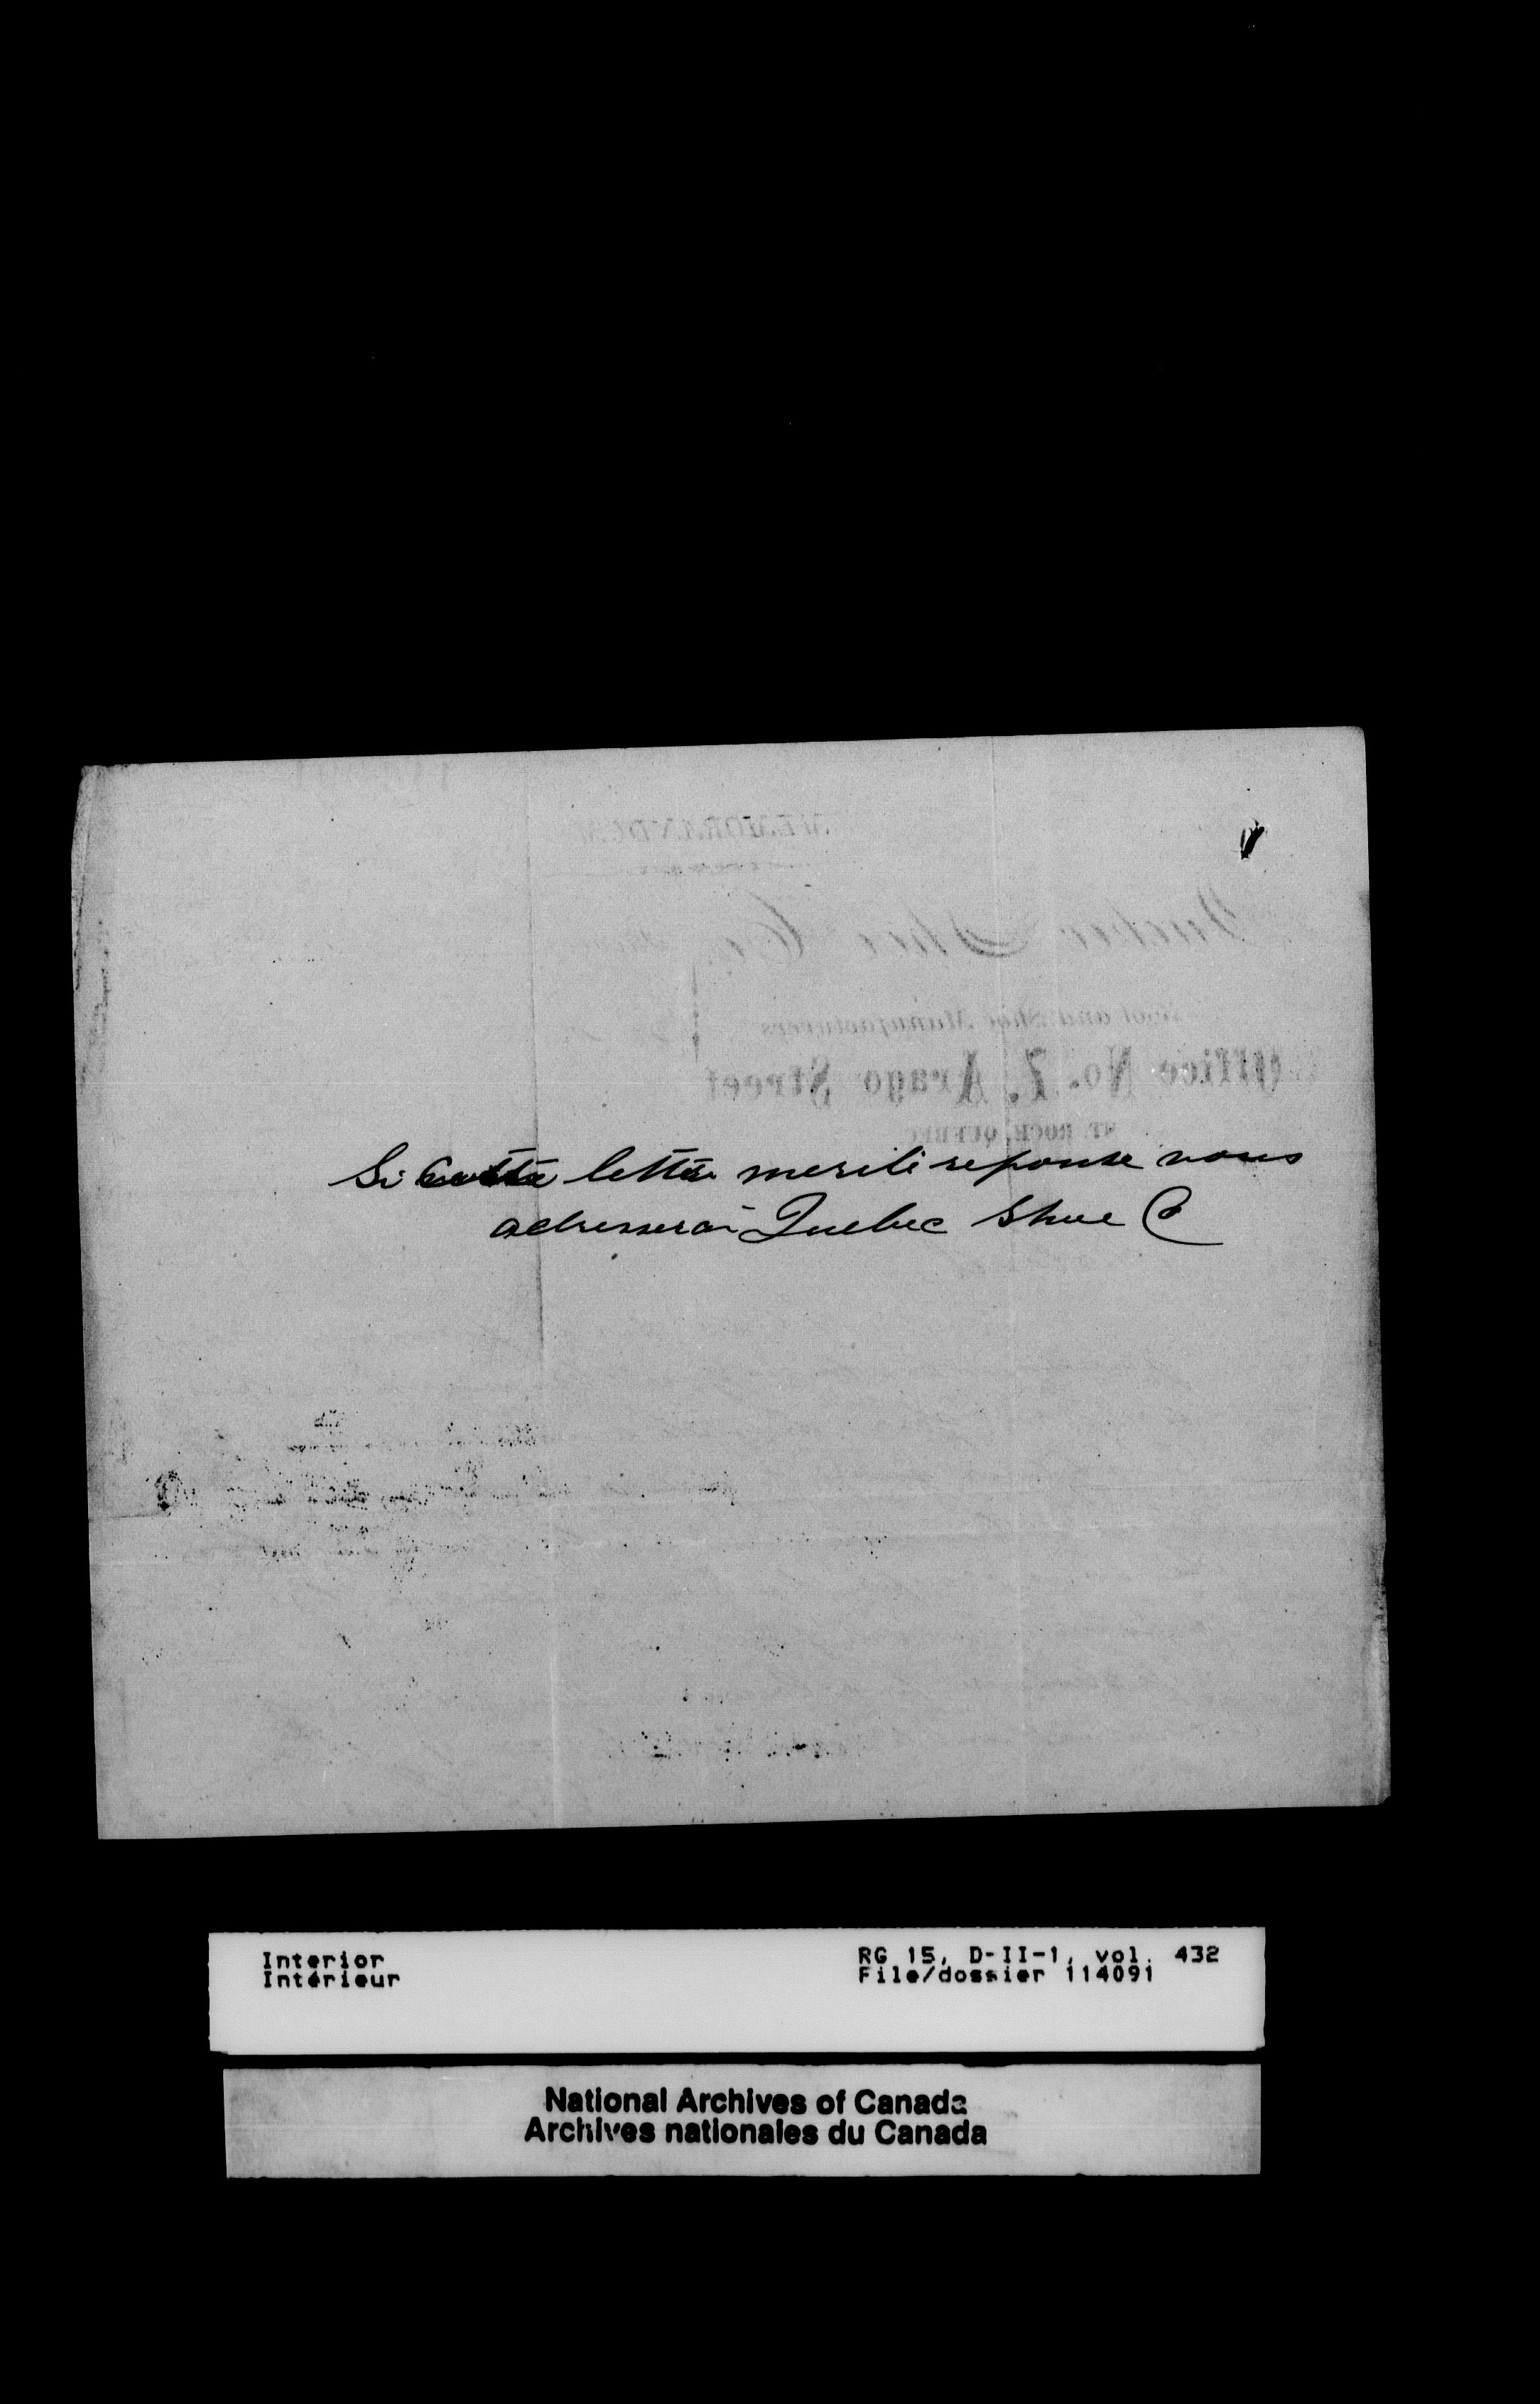 Si cette lettre merite reponse vous
adresser ai Quebec Shoe Co
Interior
Intérieur
RG 15, D-II-1, vol. 432
File/dossier 114091
National Archives of Canada
Archives nationales du Canada